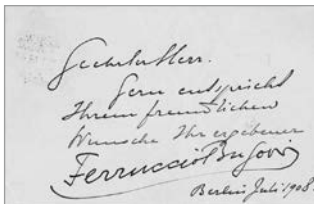 Geehrter Herr.
Gern entspricht
Ihrem freundlichen
Wunsche Ihr ergebener
Ferruccio Busoni
Berlin Juli 1908.